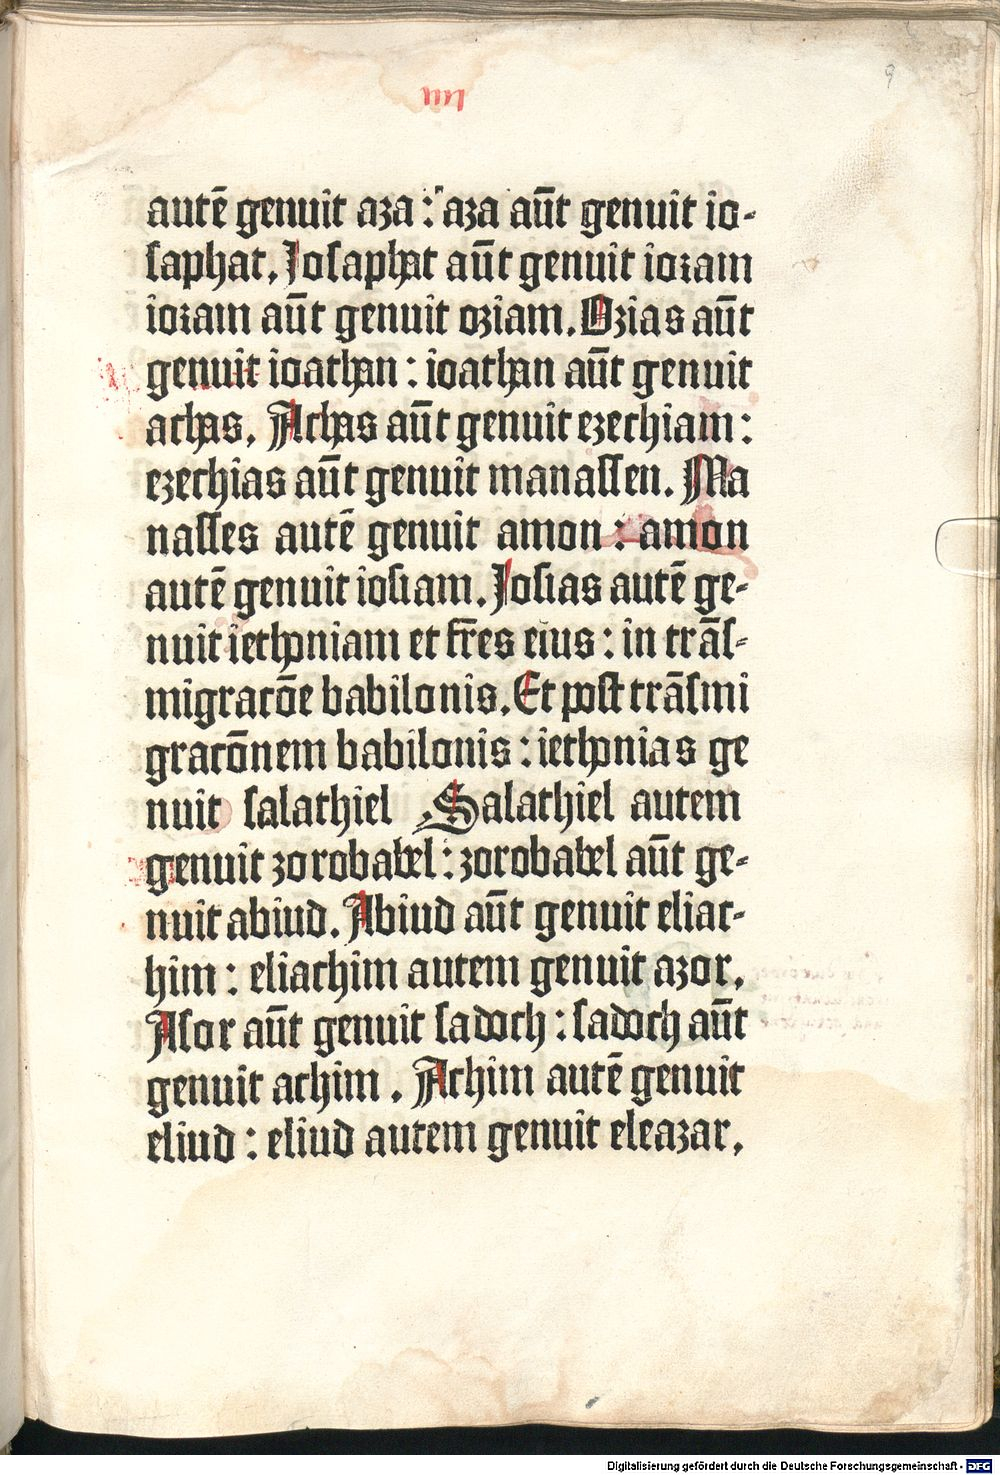 iiii
9
autē genuit aza : aza aūt genuit io-
saphat. Josaphat aūt genuit ioram
ioram aūt genuit oziam. Ozias aūt
genuit ioathan : ioathan aūt genuit
achas. Achas aūt genuit ezechiam :
ezechias aūt genuit manassen. Ma
nasses autē genuit amon : amon
autē genuit iosiam. Josias autē ge-
nuit iechoniam et fr̄es eius : in trās-
migracōe babilonis. Et post trāsmi
gracōnem babilonis : iechonias ge
nuit salathiel Salathiel autem
genuit zorobabel : zorobabel aūt ge-
nuit abiud. Abiud aūt genuit eliac-
him : eliachim autem genuit azor.
Asor aūt genuit sadoch : sadoch aūt
genuit achim . Achim autē genuit
eliud : eliud autem genuit eleazar.
Digitalisierung gefördert durch die Deutsche Forschungsgemeinschaft - DFG